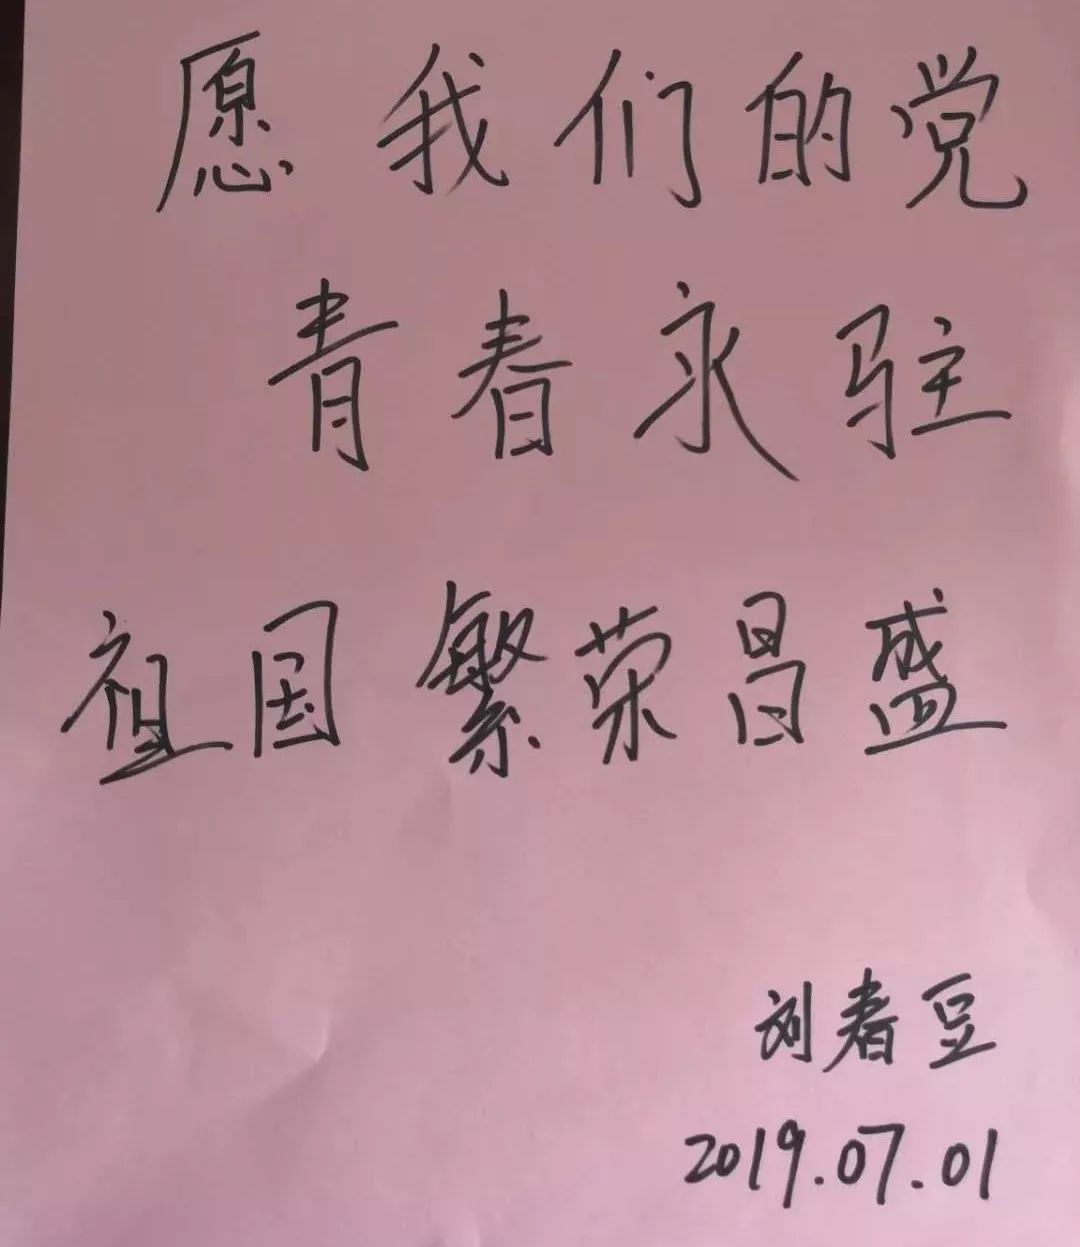 愿我们的党
青春永驻
祖国繁荣昌盛
刘春豆
2019.07.01